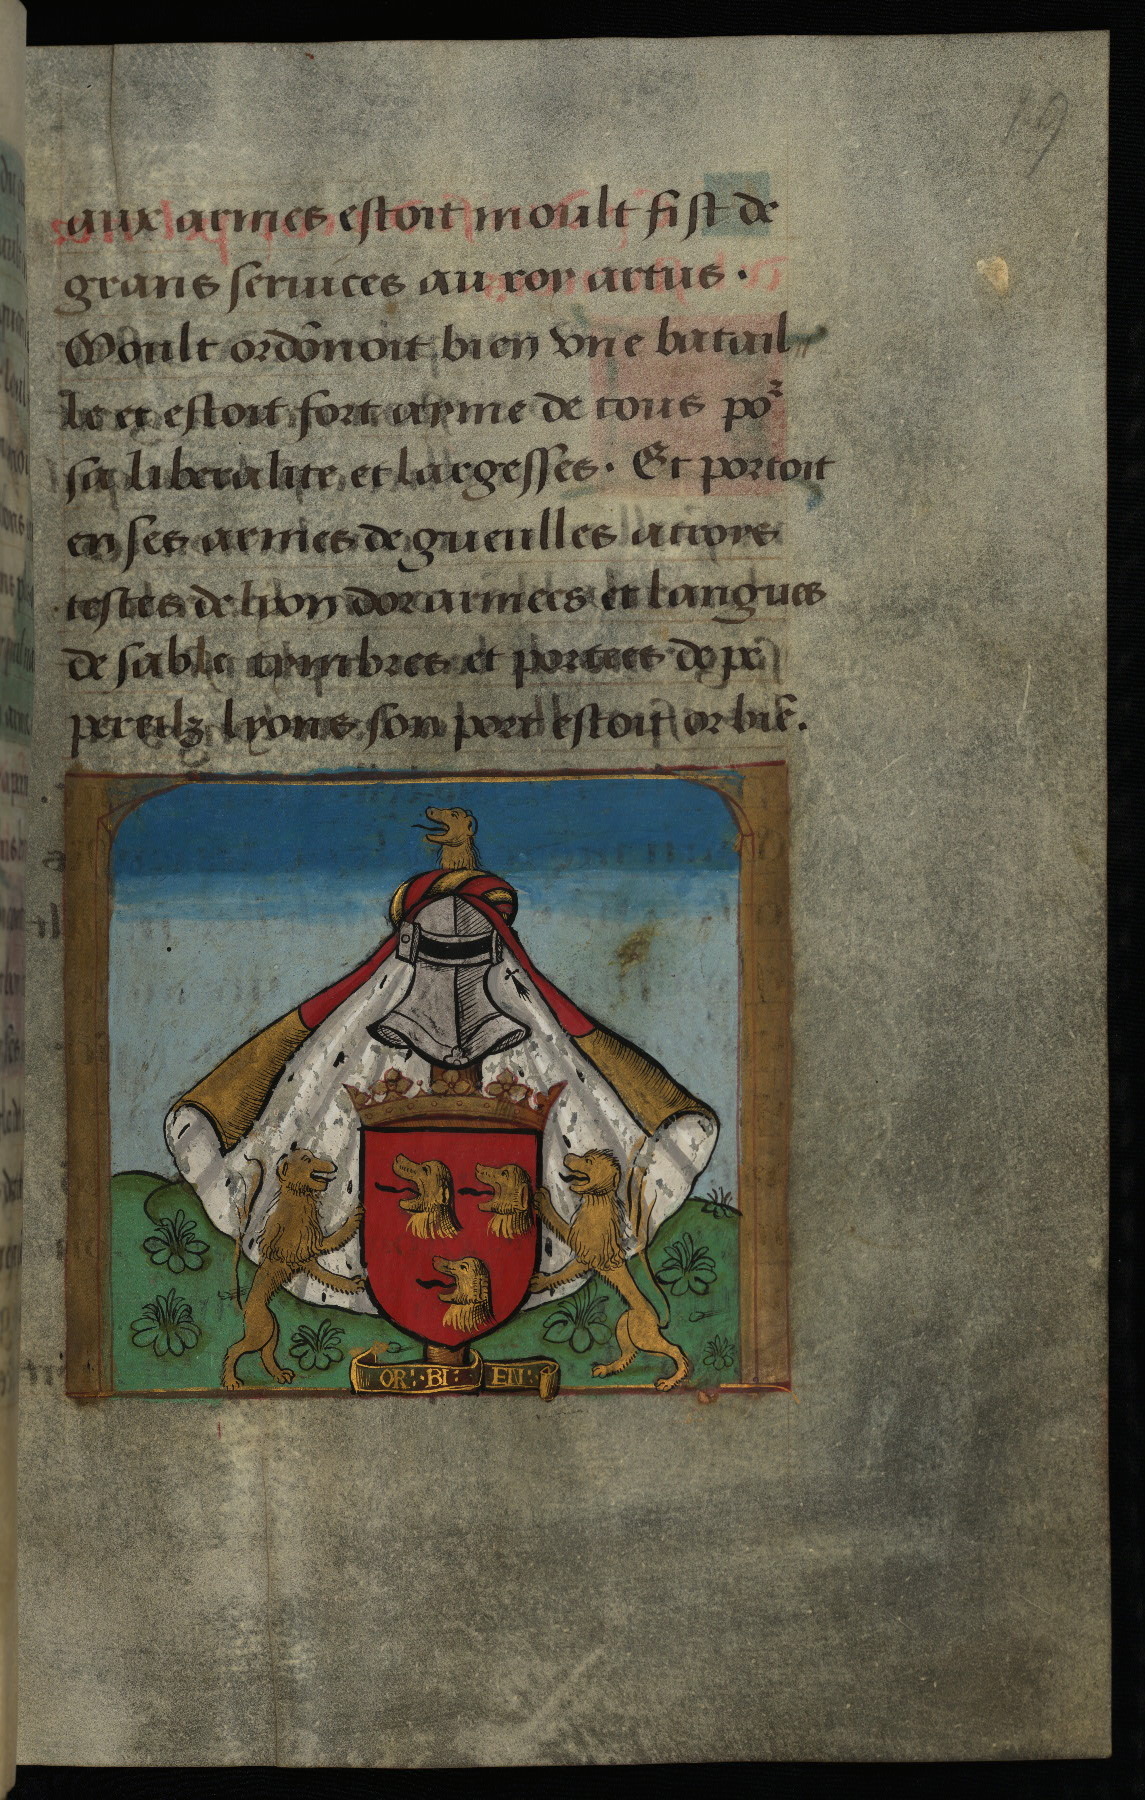 19
aux armes estoit moult fist de
grans seruices au roy artus ·
Moult ordōnoit bien vne batail
le et estoit fort ayme de tous poʳ
sa liberalite et largesses · Et portoit
en ses armes de gueulles a troys
testes de lyon dor armees et langues
de sable tymbres et portees de pe
pereilz lyons son port estoit or biē.
OR : · BI : EN :